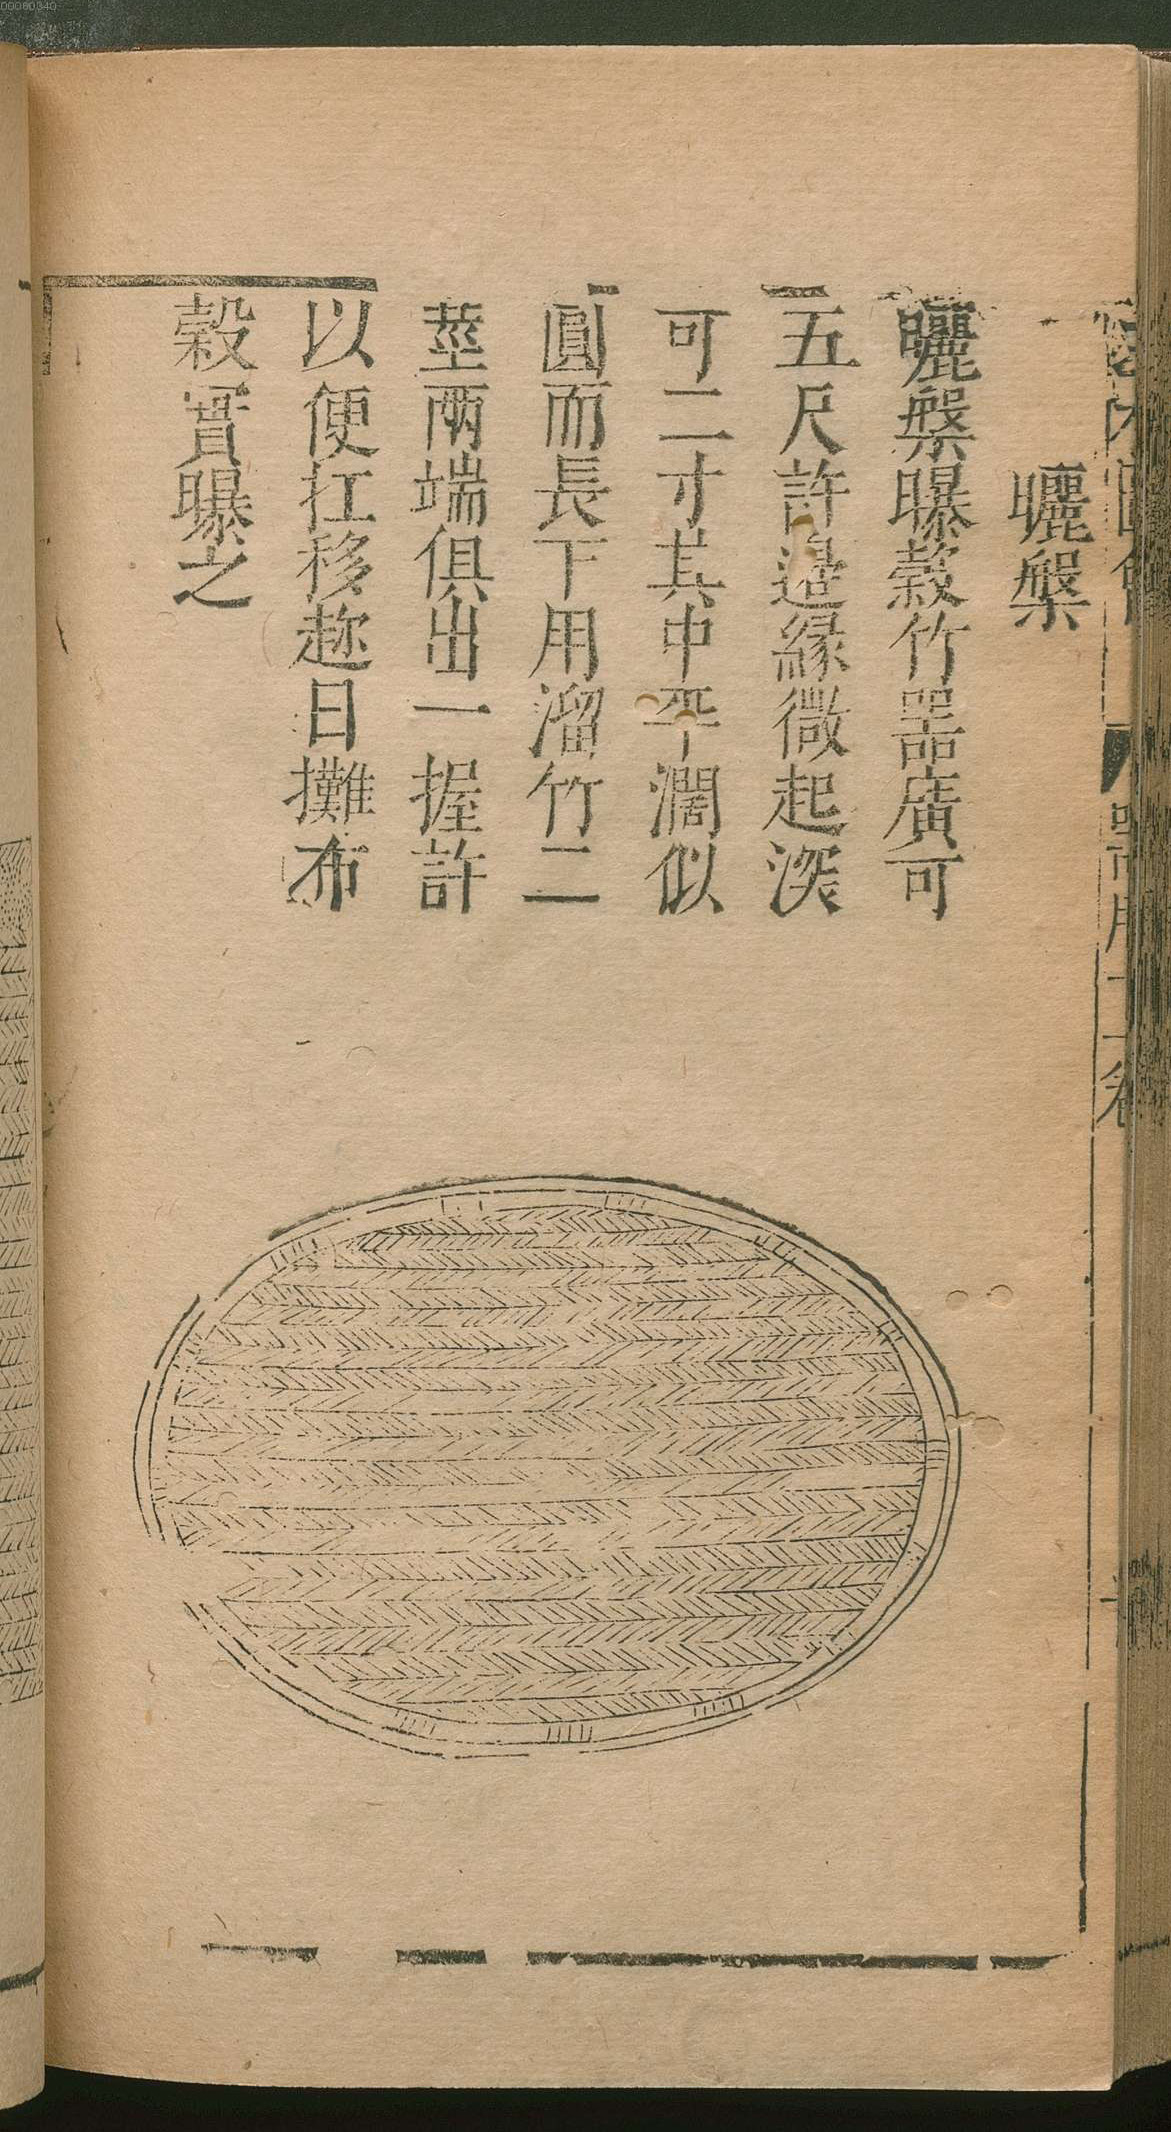 曬槃
曬槃曝穀竹器廣可
五尺許邉緣微起深
可二寸其中平濶似
圓而長下用溜竹二
莖兩端俱出一握許
以便扛移趂日攤布
穀實曝之
00060340